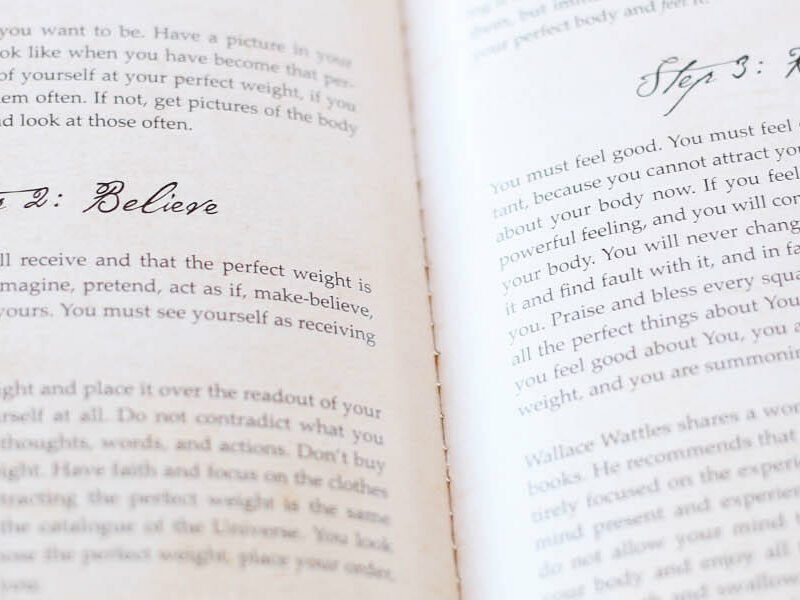 you want to be. Have a picture in your
ok like when you have become that per-
of yourself at your perfect weight, if you
em often. If not, get pictures of the body
d look at those often.
2: Believe
ll receive and that the perfect weight is
magine, pretend, act as if, make-believe,
yours. You must see yourself as receiving
ight and place it over the readout of your
rself at all. Do not contradict what you
thoughts, words, and actions. Don't buy
ight. Have faith and focus on the clothes
tracting the perfect weight is the same
the catalogue of the Universe. You look
ose the perfect weight, place your order,
you.
them, but
your perfect body and feel it.
Step 3: R
You must feel good. You must feel
tant, because you cannot attract you
about your body now. If you feel
powerful feeling, and you will con
your body. You will never chang
it and find fault with it, and in fa
you. Praise and bless every squa
all the perfect things about You
you feel good about You, you a
weight, and you are summonin
Wallace Wattles shares a won
books. He recommends that
tirely focused on the experi
mind present and experien
do not allow your mind t
your body and enjoy all
and swallow